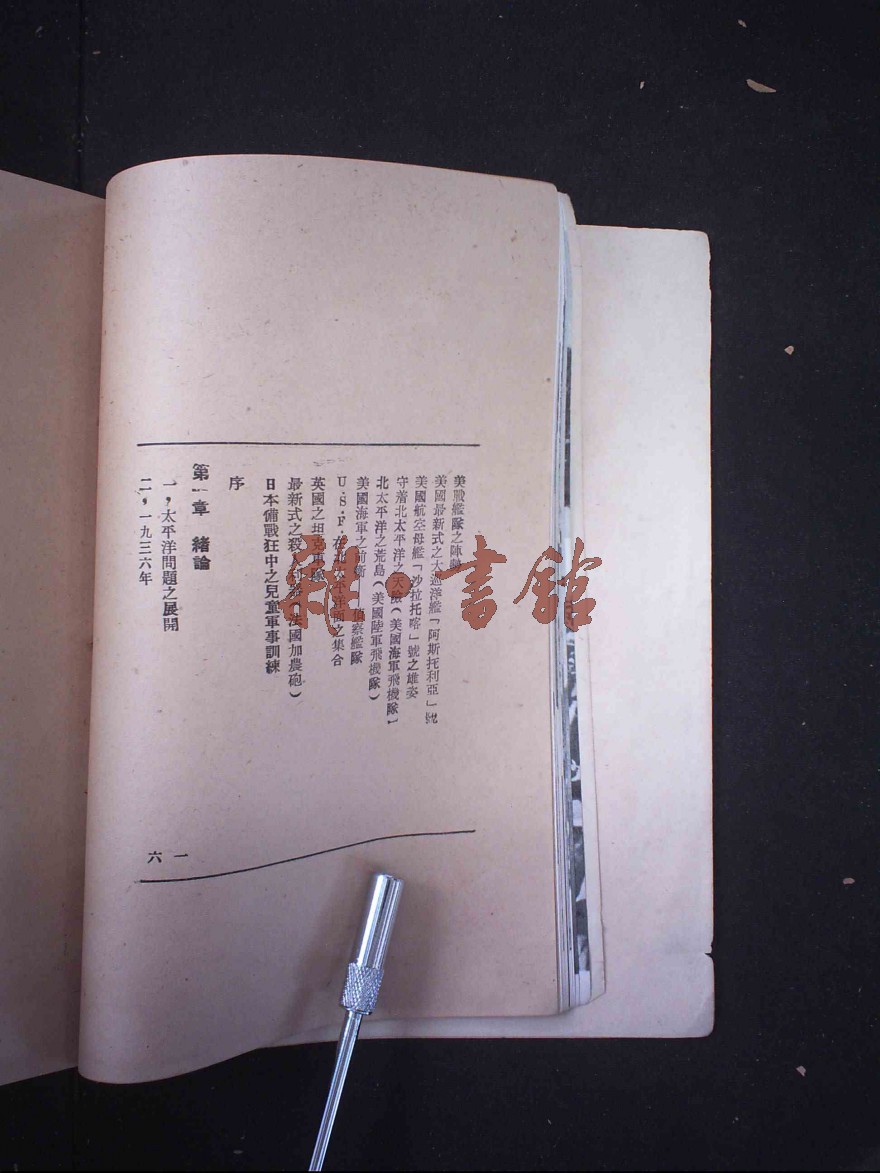 美戰艦隊之陣勢
美國最新式之大巡洋艦「阿斯托利亞」號
美國航空母艦「沙拉托喀」號之雄姿
守着北太平洋之天險(美國海軍飛機隊)
北太平洋之荒島(美國陸軍飛機隊)
美國海軍之前衛 偵察艦隊
U.S.F.在北太平洋面之集合
英國之坦克車隊
最新式之殺人利器(法國加農砲)
日本備戰狂中之兒童軍事訓練
序
第一章 緒論
一,太平洋問題之展開
二,一九三六年
一
六
雜·書館